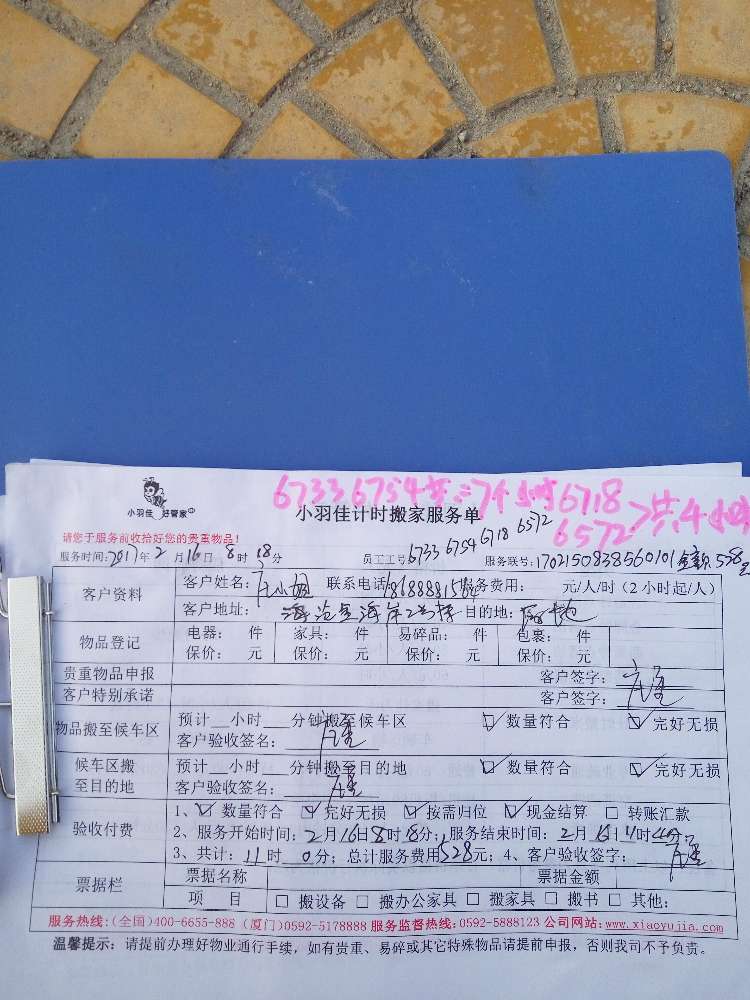 67336754共=7个小时6718
6572>共4小时
小羽佳 好管家
小羽佳计时搬家服务单
请您于服务前收拾好您的贵重物品!
服务时间:2017年2月16日8时18分 员工工号6733 6754 6718 6572 服务联号:1702150838560101 金额528元
客户资料 客户姓名: 小姐 联系电话 服务费用: 元/人/时(2小时起/人)
客户地址: 海沧区海岸2号楼 目的地:
物品登记 电器: 件 家具: 件 易碎品: 件 包裹: 件
保价: 元 保价: 元 保价: 元 保价: 元
贵重物品申报 客户签字:
客户特别承诺 客户签字:
物品搬至候车区 预计__小时__分钟搬至候车区 ☑ 数量符合 ☑ 完好无损
客户验收签名:
候车区搬至目的地 预计__小时__分钟搬至目的地 ☑ 数量符合 ☑ 完好无损
客户验收签名:
验收付费 1、☑ 数量符合 ☑ 完好无损 ☑ 按需归位 ☑ 现金结算 □ 转账汇款
2、服务开始时间:2月16日8时18分;服务结束时间:2月16日 时 分
3、共计:11时 0分;总计服务费用528元;4、客户验收签字:
票据栏 票据名称 票据金额
项 目 □ 搬设备 □ 搬办公家具 □ 搬家具 □ 搬书 □ 其他:
服务热线:(全国)400-6655-888 (厦门)0592-5178888 服务监督热线:0592-5888123 公司网站:www.xiaoyujia.com
温馨提示:请提前办理好物业通行手续,如有贵重、易碎或其它特殊物品请提前申报,否则我司不予负责。